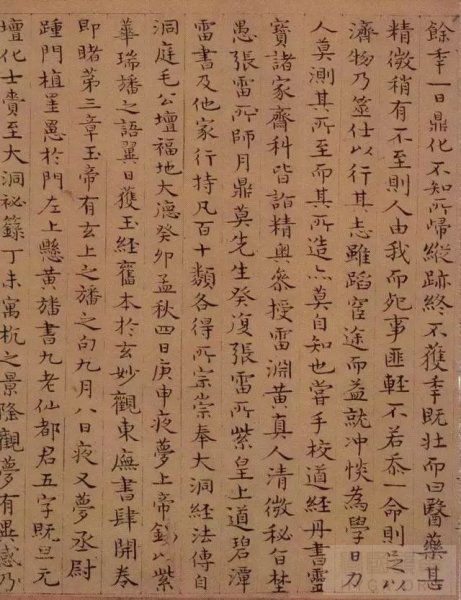 餘年一日鼎化不知所歸縱跡終不獲年既壯而曰醫藥甚
精微稍有不至則人由我而死事匪輕不若忝一命則足以
濟物乃筮仕以行其志雖蹈宦途而益就沖惔為學日力
人莫測其所至而其所造亦莫自知也嘗手校道經丹書靈
寶諸家齋科皆詣精奧參授雷淵黃真人清微秘旨埜
愚張雷所師月鼎莫先生癸復張雷所紫皇上道碧潭
雷書及他家行持凡百十類各得所宗崇奉大洞經法傳自
洞庭毛公壇福地大德癸卯孟秋四日庚申夜夢上帝錫以紫
華瑞旛之語翼日獲玉經舊本於玄妙觀東廡書肆開卷
即睹第三章玉帝有玄上之旛之句九月八日夜又夢丞尉
踵門植星罳於門左上懸黃旛書九老仙都君五字既旦元
壇化士賷至大洞祕籙丁未寓杭之景隆觀夢有異感乃